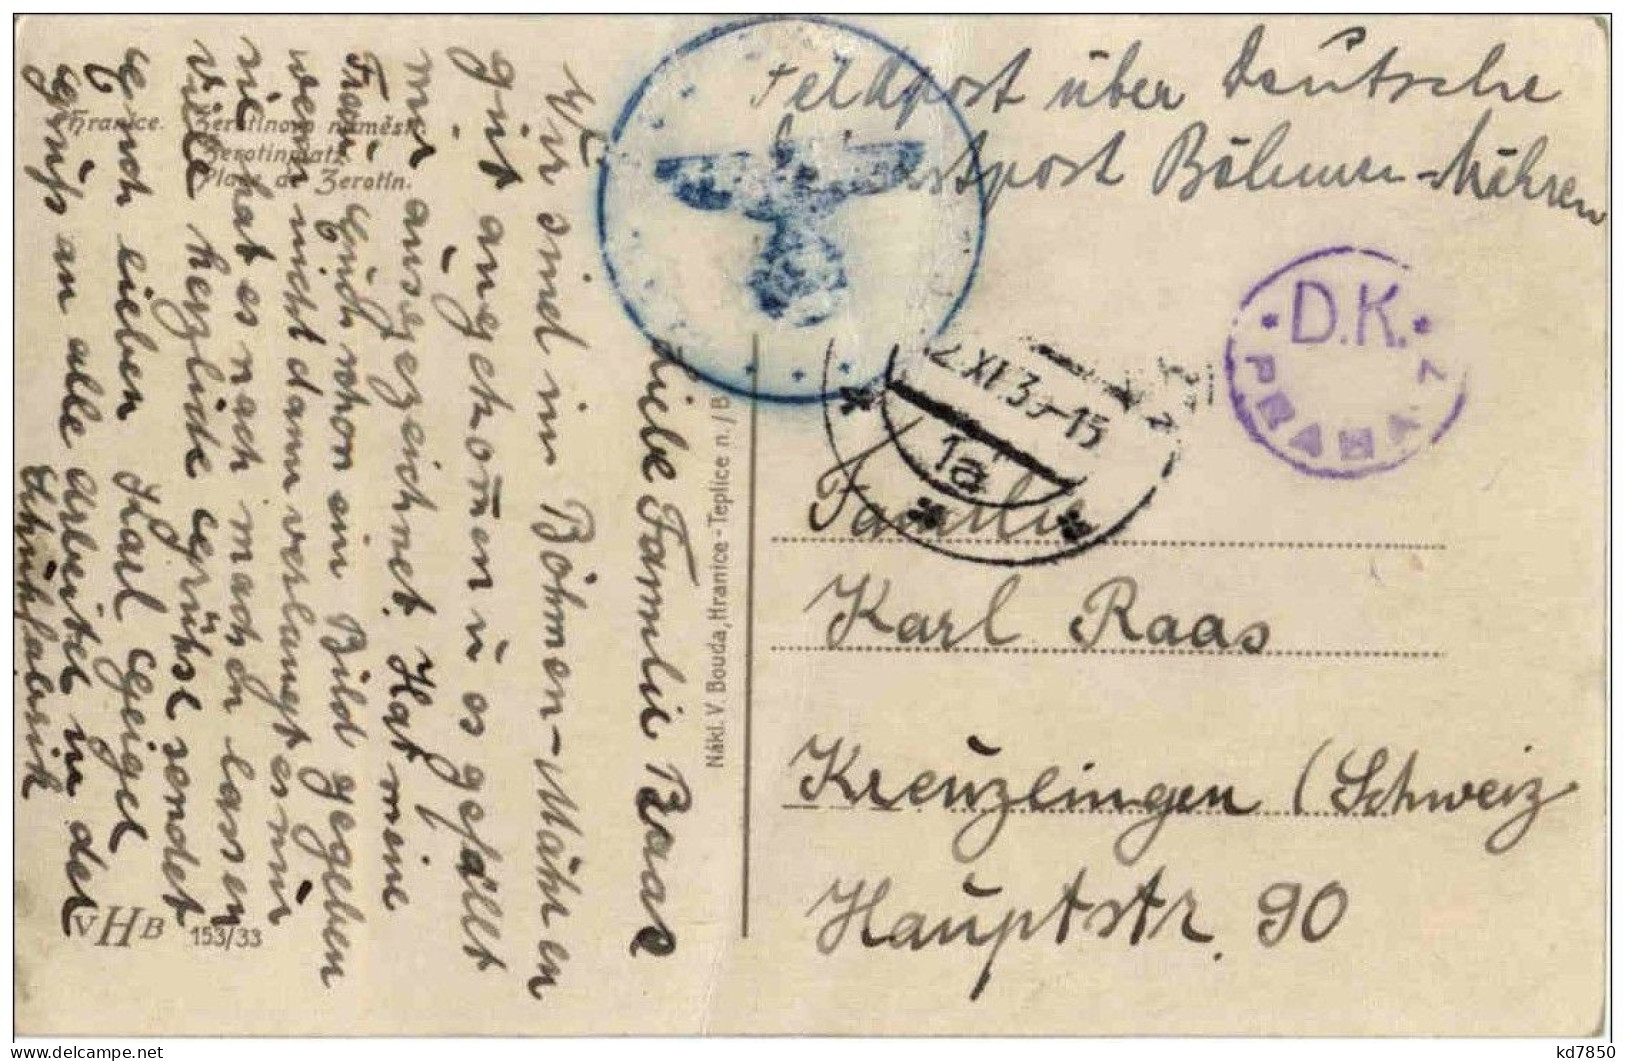 Hranice. Žerotinovo náměstí.
Zerotinplatz.
Place de Zerotin.
Feldpost über Deutsche
Böhmen-Mähren
D.K.
PRAHA 7
.2.XI.39-15
1a
Familie
Karl Raas
Kreuzlingen (Schweiz
Hauptstr. 90
Nákl. V. Bouda, Hranice - Teplice n./B
Liebe Familie Raas
Wir sind in Böhmen-Mähren
gut angekommen u es gefällt
mir ausgezeichnet. Hat meine
Frau Euch schon ein Bild gegeben
wenn nicht dann verlangt es nur
sie hat es nach machen lassen
Viele herzliche Grüße sendet
Euch lieben Karl Geigel
Gruß an alle Arbeiter in der
Schuhfabrik
VHB 153/33
kd7850